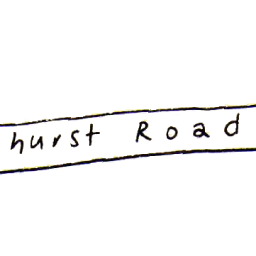 hurst Road